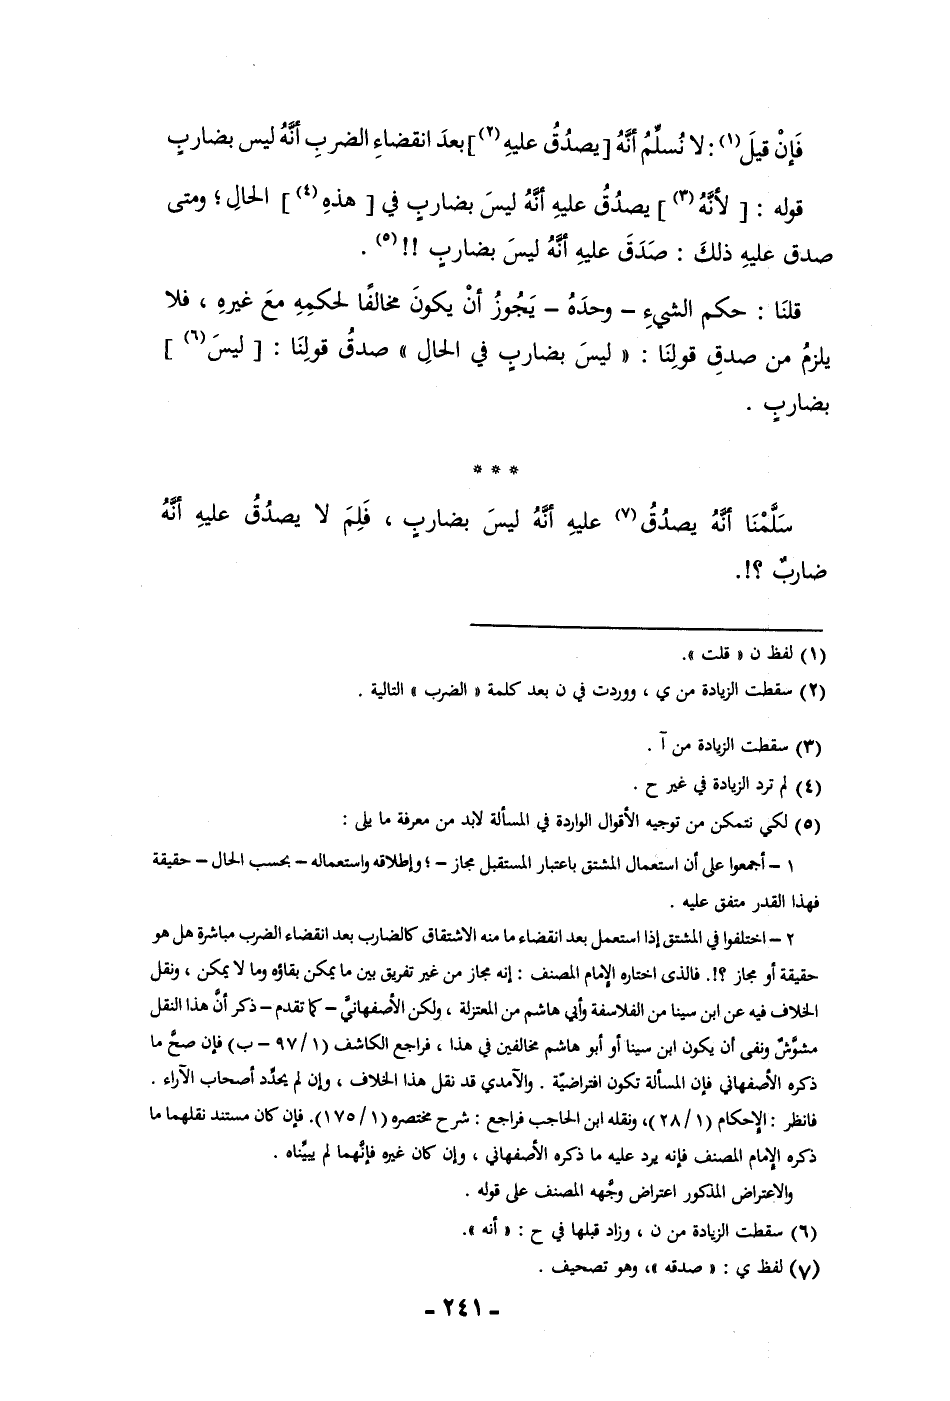 فَإنْ قيلَ(١): لا نُسلِّمُ أنَّهُ [يصدُقُ عليهِ(٢)] بعدَ انقضاءِ الضربِ أنَّهُ ليس بضاربٍ
قوله : [ لأنَّهُ(٣) ] يصدُقُ عليهِ أنَّهُ ليسَ بضاربٍ في [ هذهِ(٤) ] الحالِ ؛ ومتى
صدق عليهِ ذلكَ : صَدَقَ عليهِ أنَّهُ ليسَ بضاربٍ !!(٥) .
قلنَا : حكم الشيءِ – وحدَهُ – يَجُوزُ أنْ يكونَ مخالفًا لحكمِهِ معَ غيرِهِ ، فلا
يلزمُ من صدقِ قولِنَا : « ليسَ بضاربٍ في الحالِ » صدقُ قولِنَا : [ ليسَ(٦) ]
بضاربٍ .
* * *
سَلَّمْنَا أنَّهُ يصدُقُ(٧) عليهِ أنَّهُ ليسَ بضاربٍ ، فَلِمَ لا يصدُقُ عليهِ أنَّهُ
ضاربٌ ؟!.
(١) لفظ ن « قلت ».
(٢) سقطت الزيادة من ي ، ووردت في ن بعد كلمة « الضرب » التالية .
(٣) سقطت الزيادة من آ .
(٤) لم ترد الزيادة في غير ح .
(٥) لكي نتمكن من توجيه الأقوال الواردة في المسألة لابد من معرفة ما يلى :
١ – أجمعوا على أن استعمال المشتق باعتبار المستقبل مجاز – ؛ وإطلاقه واستعماله – بحسب الحال – حقيقة
فهذا القدر متفق عليه .
٢ – اختلفوا في المشتق إذا استعمل بعد انقضاء ما منه الاشتقاق كالضارب بعد انقضاء الضرب مباشرة هل هو
حقيقة أو مجاز ؟!. فالذى اختاره الإمام المصنف : إنه مجاز من غير تفريق بين ما يمكن بقاؤه وما لا يمكن ، ونقل
الخلاف فيه عن ابن سينا من الفلاسفة وأبي هاشم من المعتزلة ، ولكن الأصفهانيَّ – كما تقدم – ذكر أنَّ هذا النقل
مشوَّشٌ ونفى أن يكون ابن سينا أو أبو هاشم مخالفين في هذا ، فراجع الكاشف (١/ ٩٧ – ب) فإن صحَّ ما
ذكره الأصفهاني فإن المسألة تكون افتراضيّة . والآمدي قد نقل هذا الخلاف ، وإن لم يحدِّد أصحاب الآراء .
فانظر : الإحكام (١/ ٢٨)، ونقله ابن الحاجب فراجع : شرح مختصره (١/ ١٧٥). فإن كان مستند نقلهما ما
ذكره الإمام المصنف فإنه يرد عليه ما ذكره الأصفهاني ، وإن كان غيره فإنَّهما لم يبيِّناه .
والاعتراض المذكور اعتراض وجَّهه المصنف على قوله .
(٦) سقطت الزيادة من ن ، وزاد قبلها في ح : « أنه ».
(٧) لفظ ي : « صدقه »، وهو تصحيف .
- ٢٤١ -